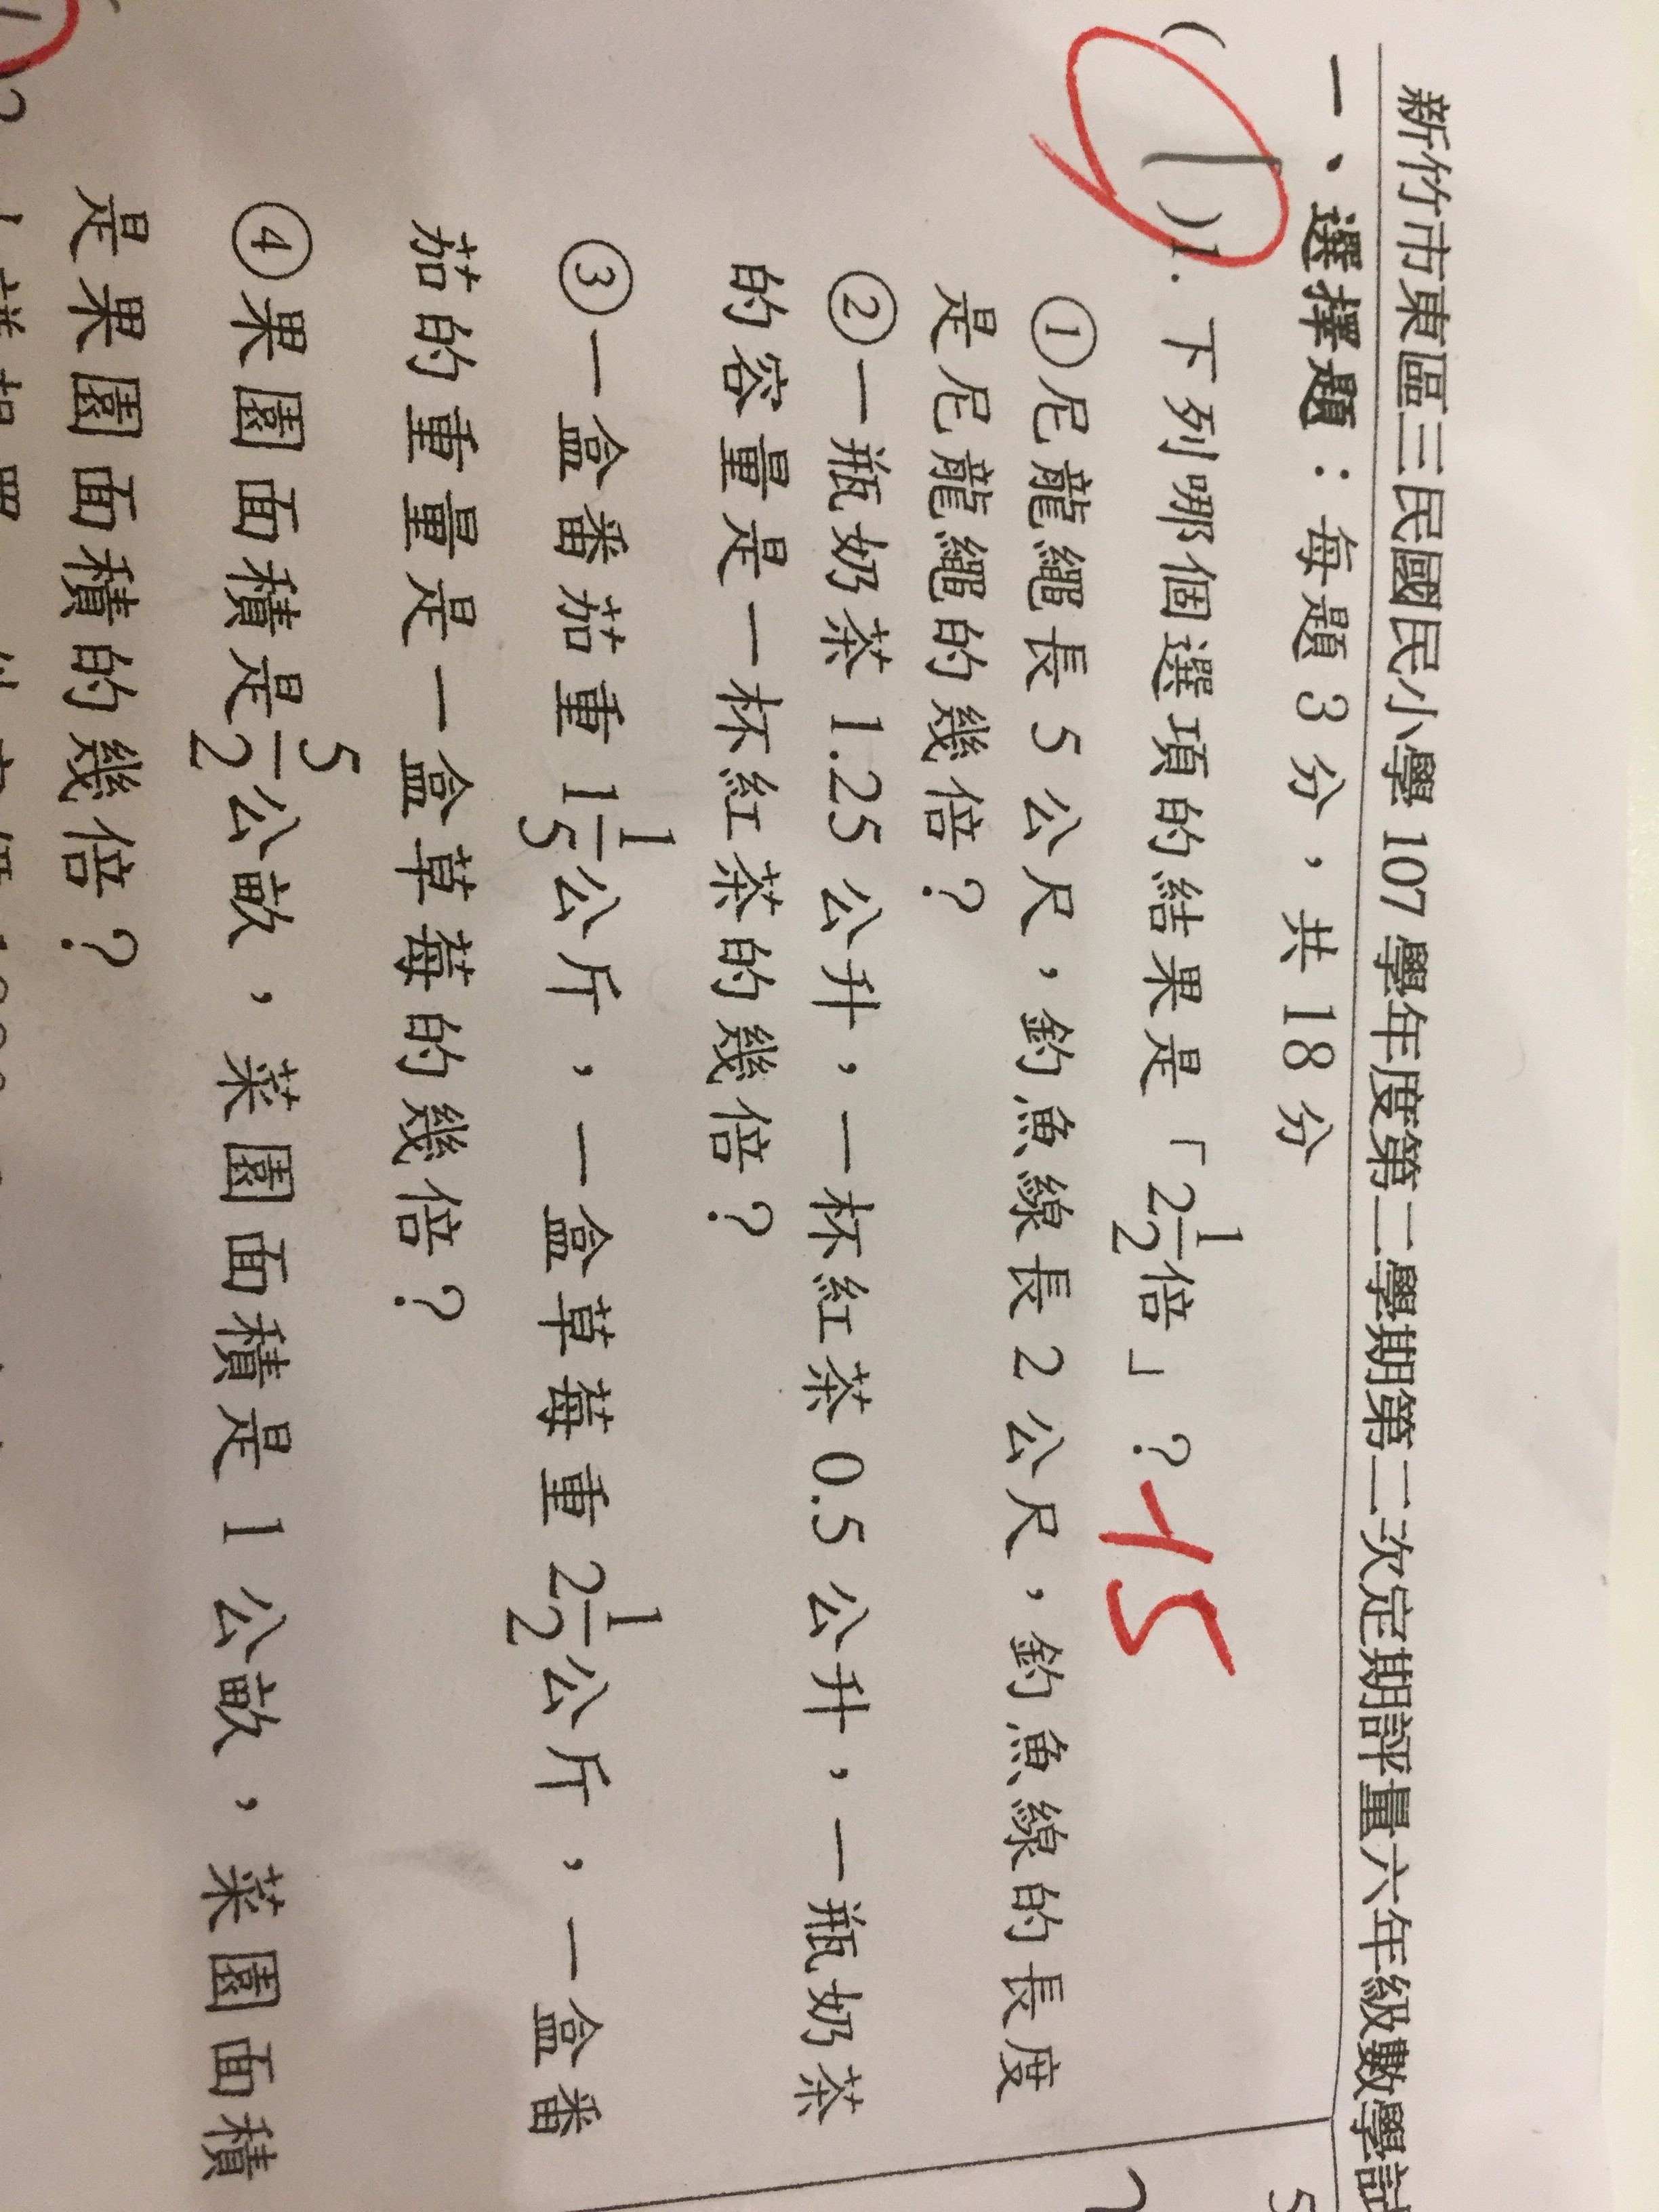 新竹市東區三民國民小學 107 學年度第二學期第二次定期評量六年級數學
一、選擇題：每題 3 分，共 18 分
( 1 )1. 下列哪個選項的結果是「2 1/2 倍」？ -15
①尼龍繩長 5 公尺，釣魚線長 2 公尺，釣魚線的長度
是尼龍繩的幾倍？
②一瓶奶茶 1.25 公升，一杯紅茶 0.5 公升，一瓶奶茶
的容量是一杯紅茶的幾倍？
③一盒番茄重 1 1/5 公斤，一盒草莓重 2 1/2 公斤，一盒番
茄的重量是一盒草莓的幾倍？
④果園面積是 5/2 公畝，菜園面積是 1 公畝，菜園面積
是果園面積的幾倍？